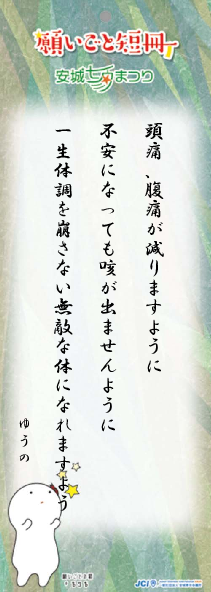 願いごと短冊
安城七夕まつり
頭痛、腹痛が減りますように
不安になっても咳が出ませんように
一生体調を崩さない無敵な体になれますよう
ゆうの
JCI